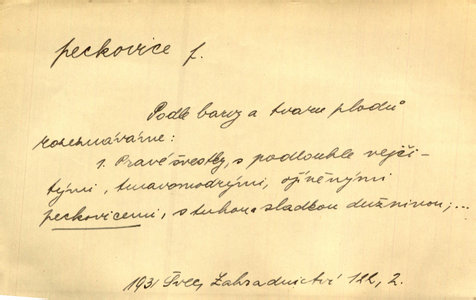 peckovice f.
Podle barvy a tvaru plodů
rozeznáváme:
1. Pravé švestky, s podlouhle vejči-
tými, tmavomodrými, ojíněnými
peckovicemi, s tuhou a sladkou dužninou;...
1931 Švec, Zahradnictví 122, 2.